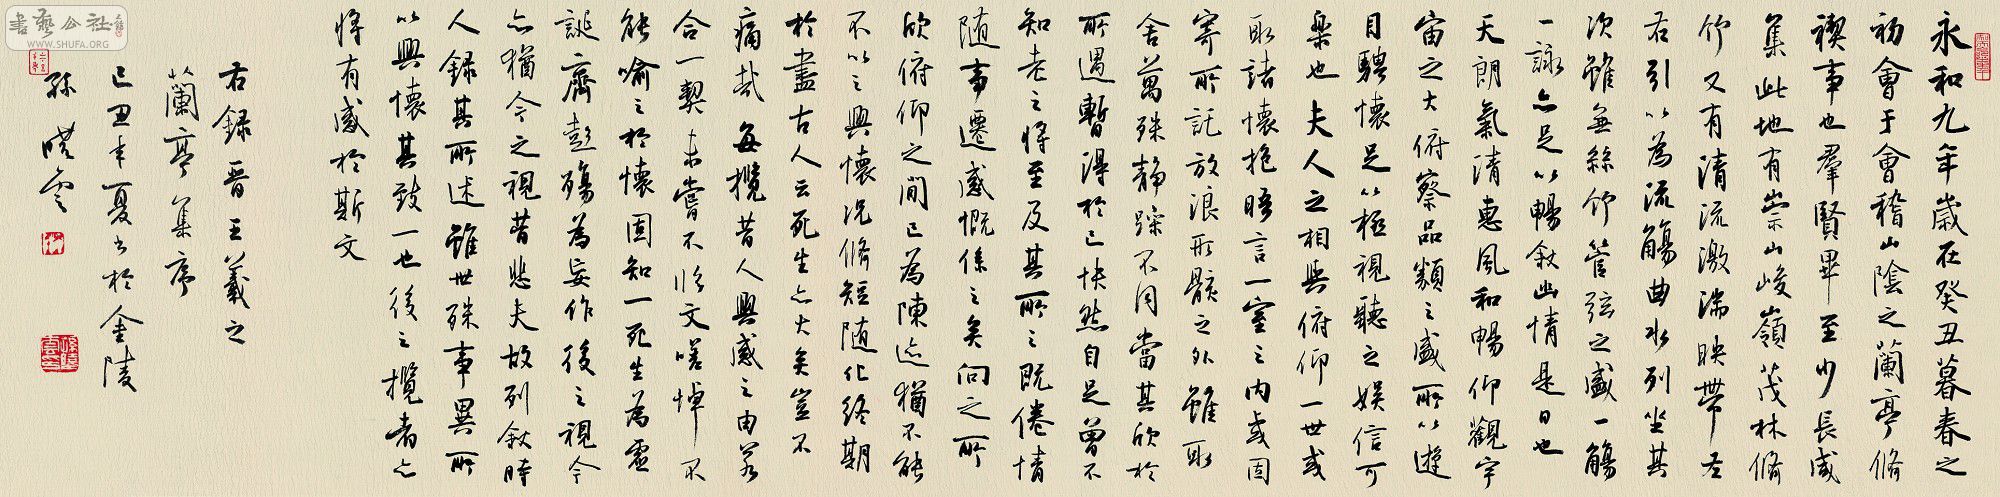 永和九年歲在癸丑暮春之
初會于會稽山陰之蘭亭脩
禊事也羣賢畢至少長咸
集此地有崇山峻嶺茂林脩
竹又有清流激湍映帶左
右引以為流觴曲水列坐其
次雖無絲竹管弦之盛一觴
一詠亦足以暢敘幽情是日也
天朗氣清惠風和暢仰觀宇
宙之大俯察品類之盛所以遊
目騁懷足以極視聽之娛信可
樂也夫人之相與俯仰一世或
取諸懷抱晤言一室之內或因
寄所託放浪形骸之外雖取
舍萬殊靜躁不同當其欣於
所遇暫得於己快然自足曾不
知老之將至及其所之既倦情
隨事遷感慨係之矣向之所
欣俯仰之間已為陳迹猶不能
不以之興懷況脩短隨化終期
於盡古人云死生亦大矣豈不
痛哉每攬昔人興感之由若
合一契未嘗不臨文嗟悼不
能喻之於懷固知一死生為虛
誕齊彭殤為妄作後之視今
亦猶今之視昔悲夫故列敘時
人錄其所述雖世殊事異所
以興懷其致一也後之攬者亦
將有感於斯文
右錄晉王羲之
蘭亭集序
己丑年夏書於金陵
孫曉雲
書藝公社
WWW.SHUFA.ORG